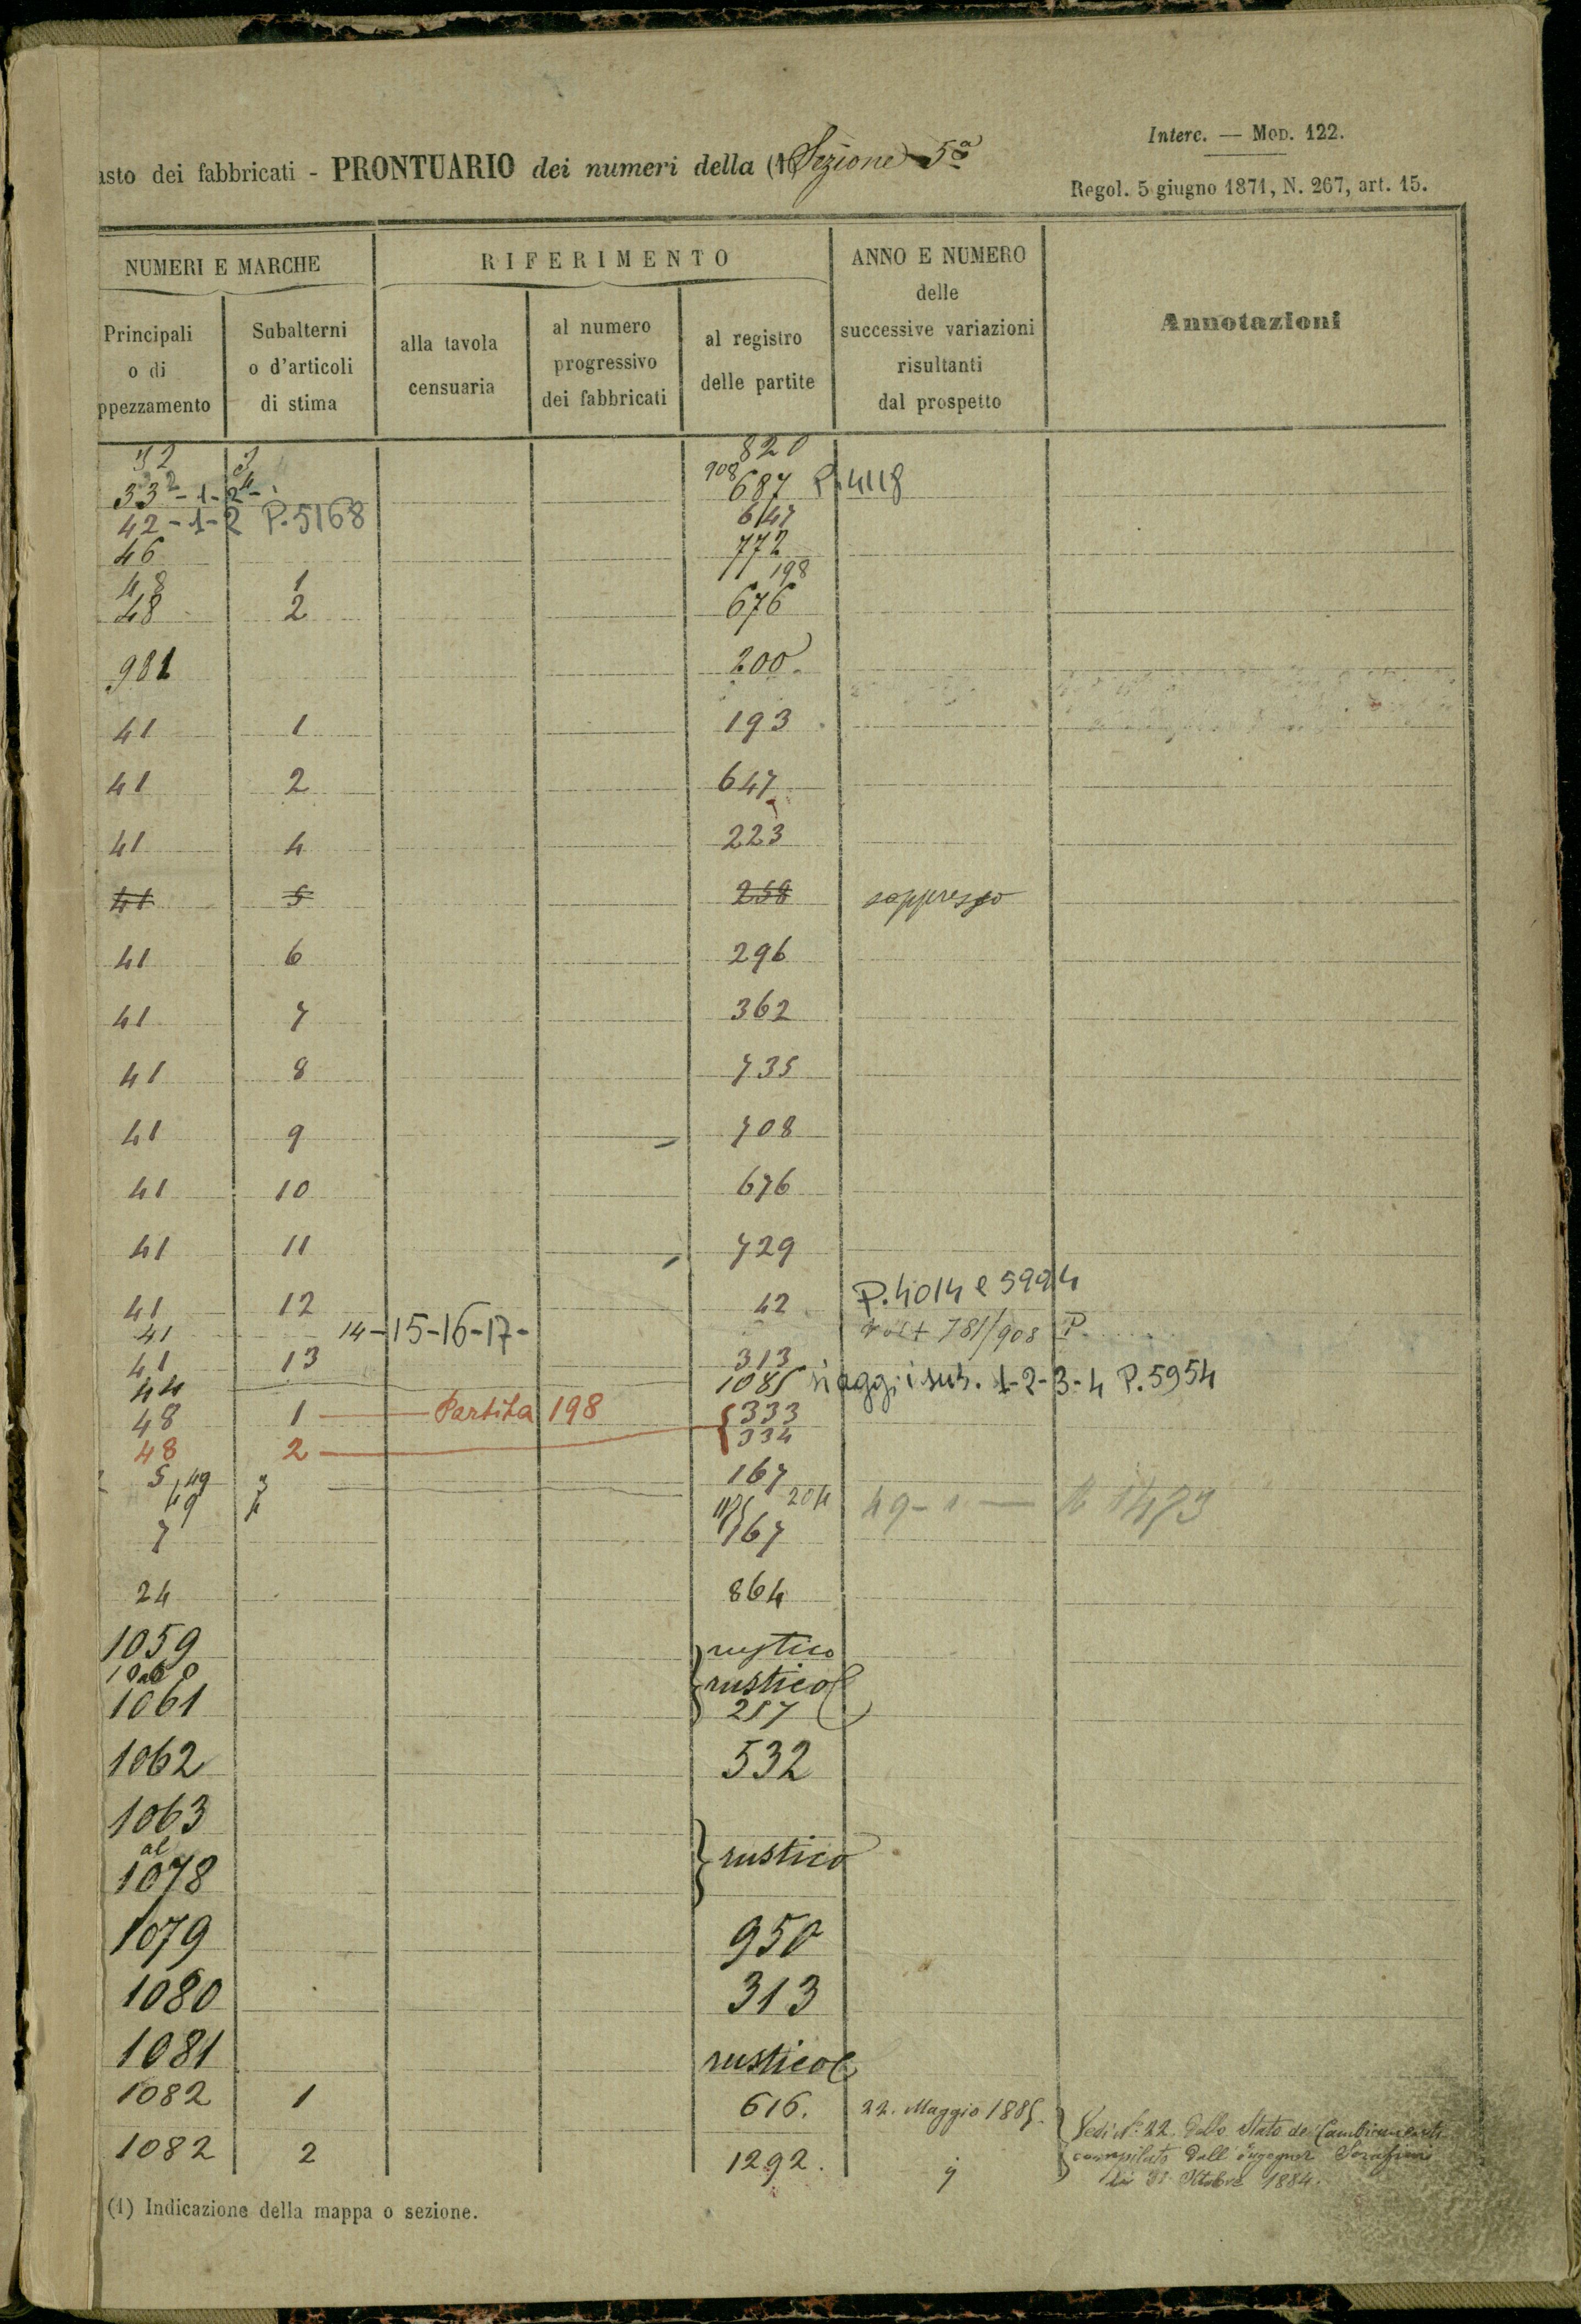 Interc. — Mod. 122.
asto dei fabbricati - PRONTUARIO dei numeri della (1) Sezione 5ª
Regol. 5 giugno 1871, N. 267, art. 15.
NUMERI E MARCHE RIFERIMENTO ANNO E NUMERO delle successive variazioni risultanti dal prospetto Annotazioni
Principali o di ppezzamento Subalterni o d'articoli di stima alla tavola censuaria al numero progressivo dei fabbricati al registro delle partite
32 3 820
33 2-1-2- 908 687 P. 4118
42-1-2 P. 5168 647
46 772
48 1 198
48 2 676
981 200
41 1 193
41 2 647
41 4 223
41 5 258 soppresso
41 6 296
41 7 362
41 8 735
41 9 708
41 10 676
41 11 729
41 12 42 P. 4014 e 5994
41 14-15-16-17- 781/908 P.
41 13 313
44 1085 si agg. i sub. 1-2-3-4 P. 5954
48 1 Partita 198 333
48 2 334
5, 49 3 167
49 4 204 49-1
7 167
24 864
1059 rustico
1060 rustico
1061 257
1062 532
1063
al rustico
1078
1079 950
1080 313
1081 rustico
1082 1 616. 22. Maggio 1885. Vedi N.° 22. dello Stato de' Cambiamenti
1082 2 1292. compilato dall'ingegner
Ottobre 1884.
(1) Indicazione della mappa o sezione.